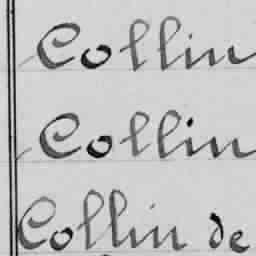 Collin
Collin
Collin de